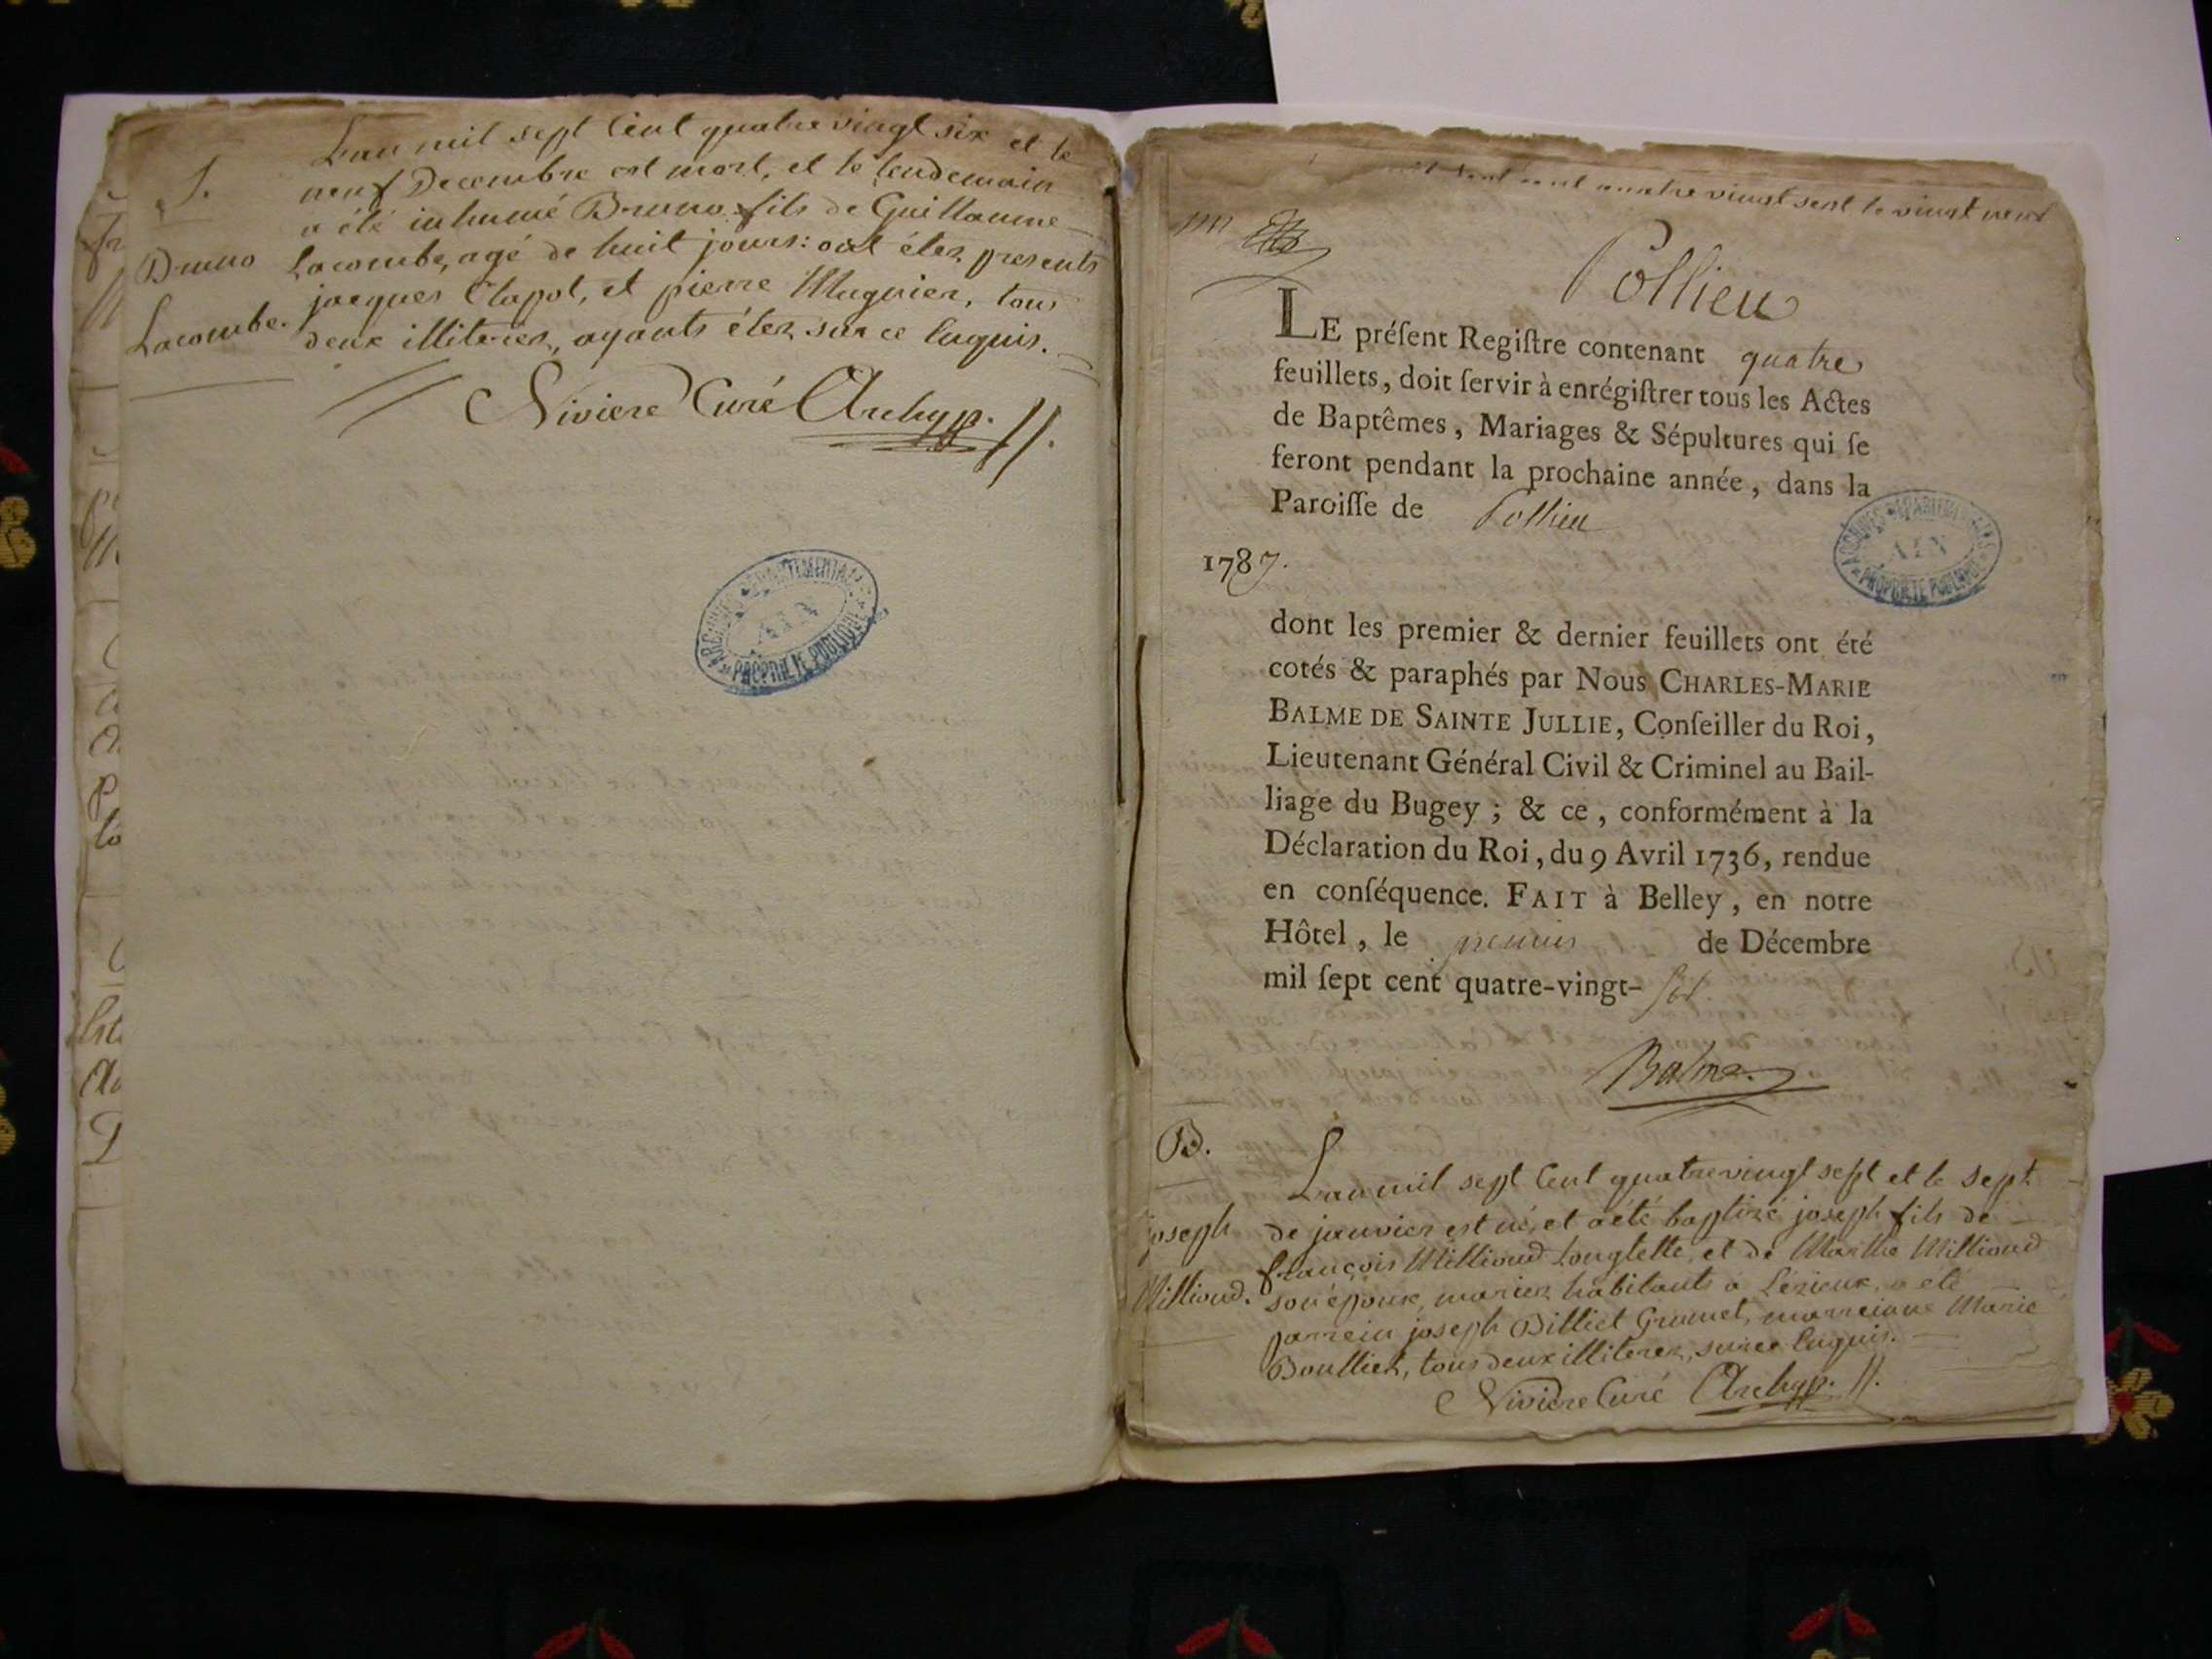 L'an mil sept Cent quatre vingt six et le
S. neuf Decembre est mort, et le lendemain
a été inhumé Bruno fils de Guillaume
Bruno Lacombe, agé de huit jours: ont étez presents
jacques Clapot, et pierre Muguier, tous
Lacombe. deux illiterez, ayants étez sur ce Enquis.
Riviere Curé Archyp.
ARCHIVES DEPARTEMENTALES
AIN
PROPRIETE PUBLIQUE
sept cent quatre vingt sept le vingt neuf
Pollieu
LE préſent Regiſtre contenant quatre
feuillets, doit ſervir à enrégiſtrer tous les Actes
de Baptêmes, Mariages & Sépultures qui ſe
feront pendant la prochaine année, dans la
Paroiſſe de Pollieu
ARCHIVES DEPARTEMENTALES
AIN
PROPRIETE PUBLIQUE
1787.
dont les premier & dernier feuillets ont été
cotés & paraphés par Nous CHARLES-MARIE
BALME DE SAINTE JULLIE, Conſeiller du Roi,
Lieutenant Général Civil & Criminel au Bail-
liage du Bugey ; & ce, conformément à la
Déclaration du Roi, du 9 Avril 1736, rendue
en conſéquence. FAIT à Belley, en notre
Hôtel, le premier de Décembre
mil ſept cent quatre-vingt-
Balme.
B.
L'an mil sept Cent quatrevingt sept et le sept
joseph de janvier est né, et a été baptizé joseph fils de
françois Millioud Longlette, et de Marthe Millioud
Millioud. son épouse, mariez habitants à Lézieux, a été
parrein joseph Billiet Grumet, marreinne Marie
Boulliet, tous deux illiterez, sur ce Enquis.
Riviere Curé Archyp.